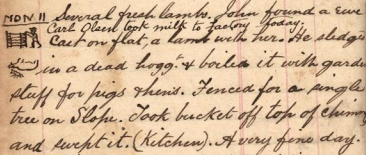 MON 11 Several fresh lambs. John found a Ewe
Carl Olsen took milk to factory today.
cast on flat, a lamb with her. He sledge
in a dead hogg & boiled it with garde
stuff for pigs & hens. Fenced for a single
tree on Slope. Took bucket off top of chimn
and swept it. (Kitchen). A very fine day.